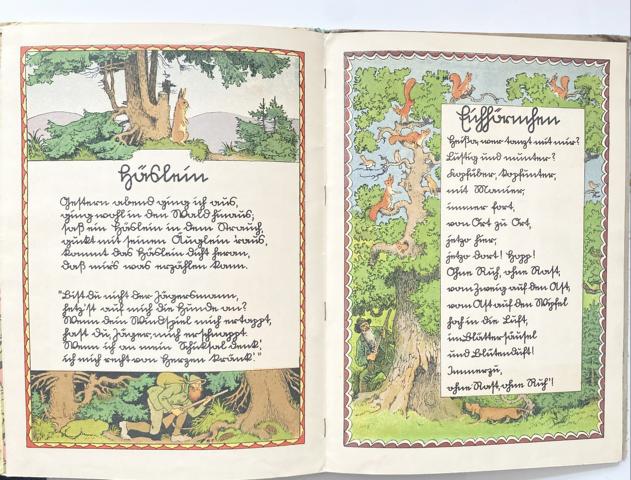 Häslein
Gestern abend ging ich aus,
ging wohl in den Wald hinaus;
saß ein Häslein in dem Strauch,
guckt mit seinen Äuglein 'raus,
kommt das Häslein dicht heran,
daß mir's was erzählen kann.
"Bist du nicht der Jägersmann,
hetz'st auf mich die Hunde an?
Wenn dein Windspiel mich ertappt,
hast du, Jäger, mich erschnappt.
Wenn ich an mein Schicksal denk',
ich mich recht von Herzen kränk'!"
Eichhörnchen
Heißa, wer tanzt mit mir?
Lustig und munter?
Kopfüber, kopfunter,
mit Manier,
immer fort,
von Ort zu Ort,
jetzo hier,
jetzo dort! Hopp!
Ohne Ruh', ohne Rast,
vom Zweig auf den Ast,
vom Ast auf den Wipfel
hoch in die Luft,
im Blättersäusel
und Blütenduft!
Immerzu,
ohne Rast, ohne Ruh'!